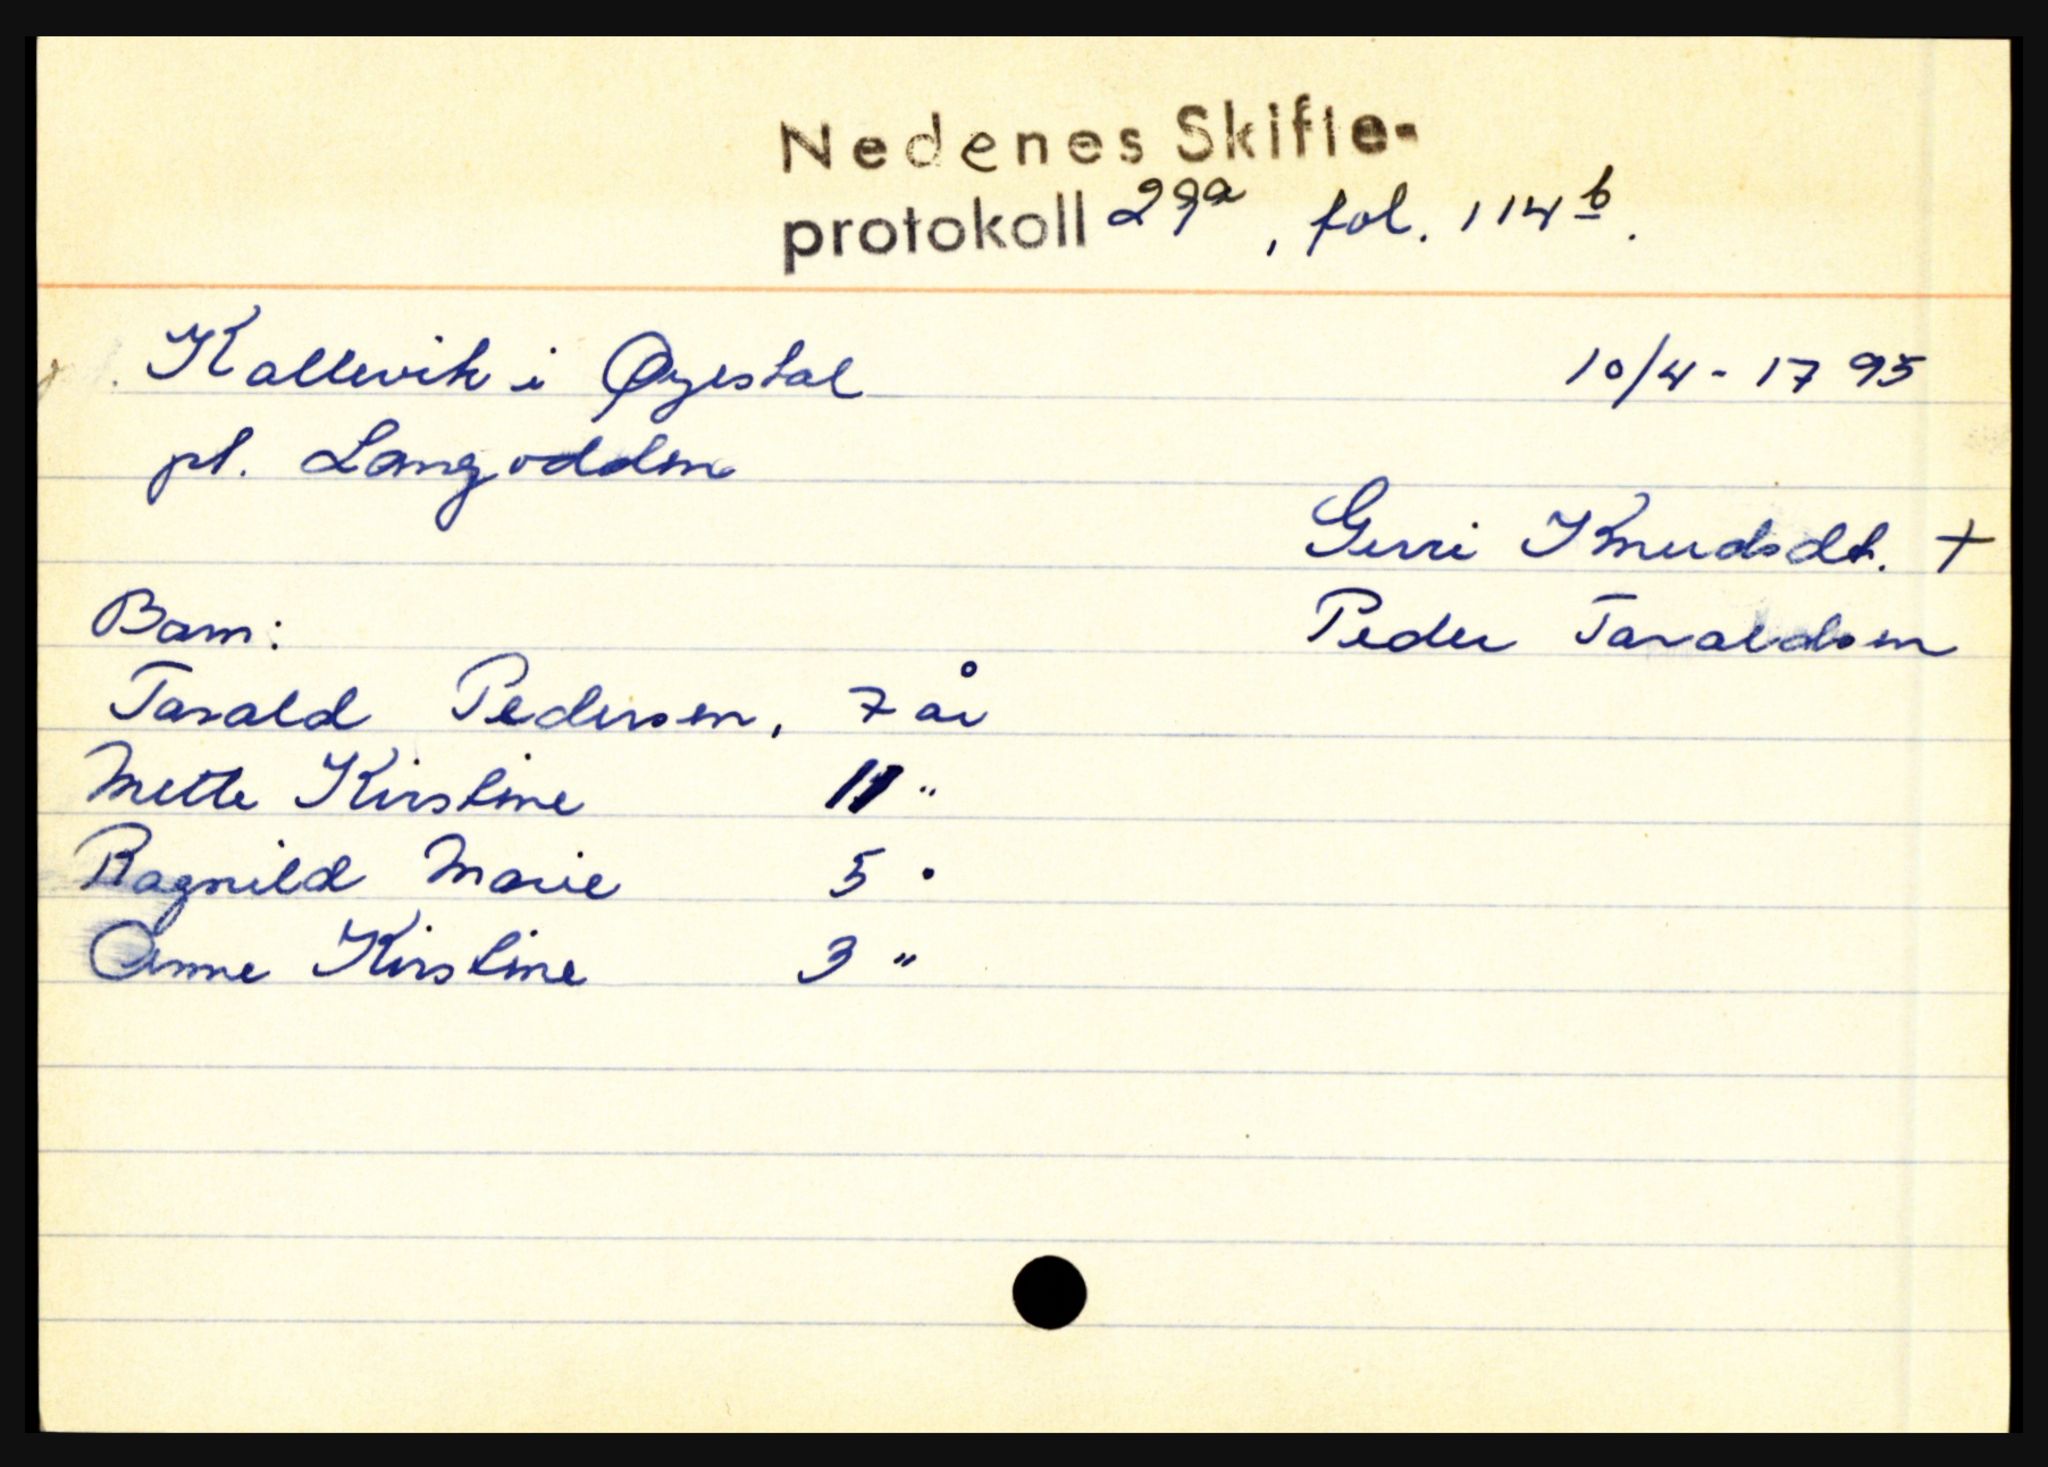 Nedenes Skifte-
protokoll 29a, fol. 114b.
Kallevik i Øyestal 10/4-1795
pl. Langodden
Gurri Knudsdt. +
Barn: Peder Taraldsen
Tarald Pedersen, 7 år
Mette Kirstine 11 "
Ragnild Marie 5 "
Anne Kirstine 3 "